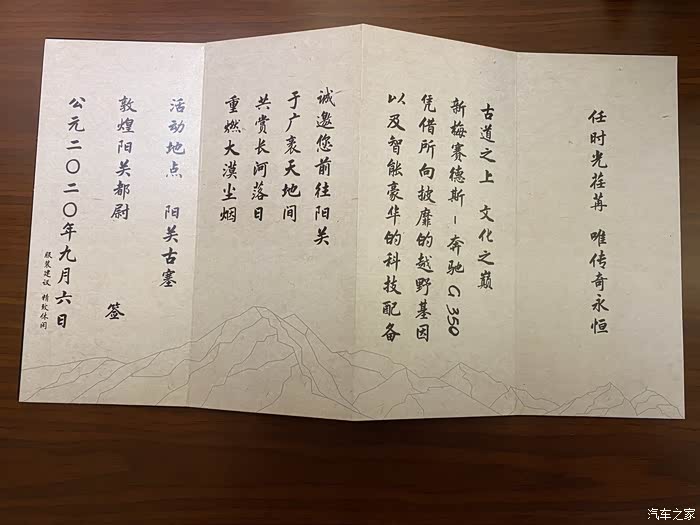 任时光荏苒 唯传奇永恒
古道之上 文化之巅
新梅赛德斯-奔驰 G 350
凭借所向披靡的越野基因
以及智能豪华的科技配备
诚邀您前往阳关
于广袤天地间
共赏长河落日
重燃大漠尘烟
活动地点 阳关古塞
敦煌阳关都尉 签
公元二〇二〇年九月六日
服装建议 精致休闲
汽车之家